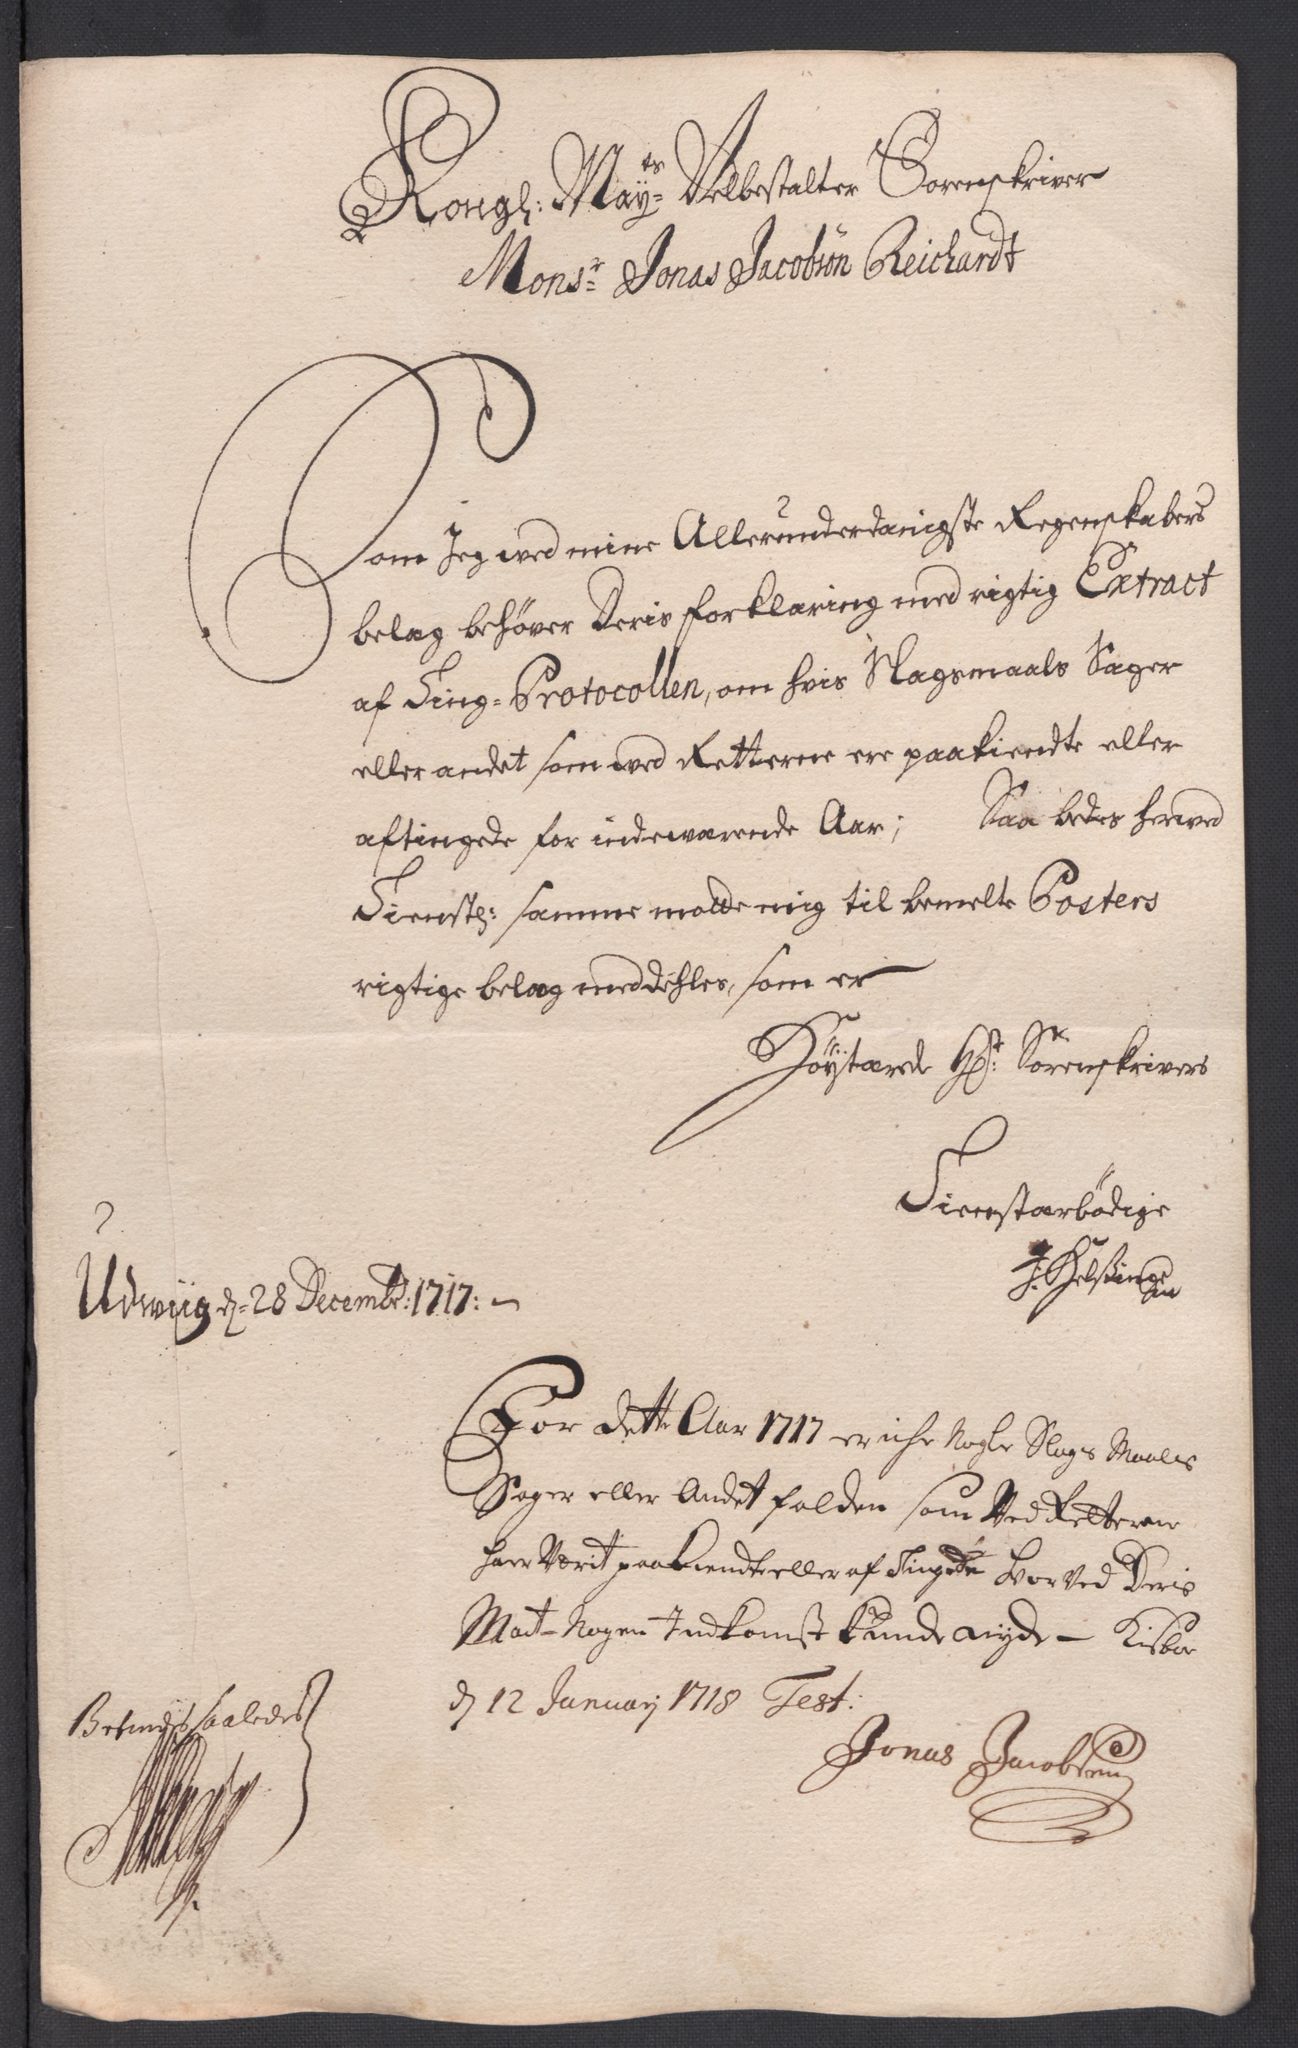 Kongl: May:ts Velbestalter Sorenskriver
Mons:r Jonas Jacobsön Reichardt
Som Jeg ved mine Allerunderdanigste Regenskabers
belæg behøver Deris forklaring med rigtig Extract
af Ting-Protocollen, om hvis Slagsmaals Sager
eller andet som ved Retterne ere paakiendte eller
aftingede for indeværende Aar; Saa bedes herved
Tienstl: samme motte mig til bemelte Posters
rigtige belæg meddehles, som er
Höystærede Hr: Sörenskrivers
Tienstærbödige
Udwiig d: 28 Decembr: 1717:
For dette Aar 1717 er iche Nogle Slags Maals
Sager eller Andet falden som Ved Retterne
haer Værit paakiendte eller af Tingede hvorVed Deris
Mayt Nogen Indkomst kunde nyde -
d 12 January 1718 Test:
Jonas Jacobsen
Befindis saaledes